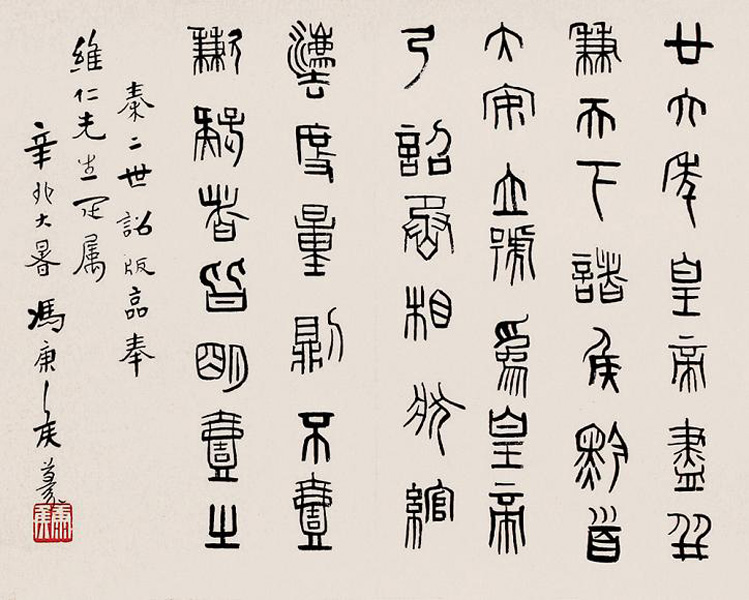 廿六年皇帝盡并
兼天下諸侯黔首
大安立號為皇帝
乃詔丞相狀綰
灋度量則不壹
歉疑者皆明壹之
秦二世詔版奉
維仁先生属
辛卯大暑 馮康侯